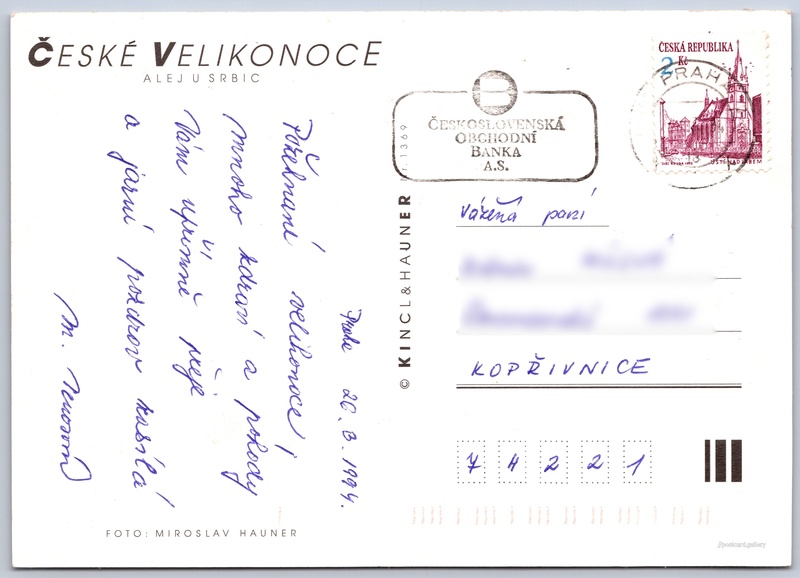 ČESKÉ VELIKONOCE
ALEJ U SRBIC
Praha 26. 3. 1994.
Požehnané velikonoce,
mnoho zdraví a pohody
Vám upřímně přeje
a jarní pozdrav zasílá
M.
FOTO: MIROSLAV HAUNER
© KINCL & HAUNER
1369
ČESKOSLOVENSKÁ
OBCHODNÍ
BANKA
A.S.
ČESKÁ REPUBLIKA
2 Kč
PRAHA
ÚSTÍ NAD LABEM
Vážená paní
KOPŘIVNICE
74221
postcard.gallery